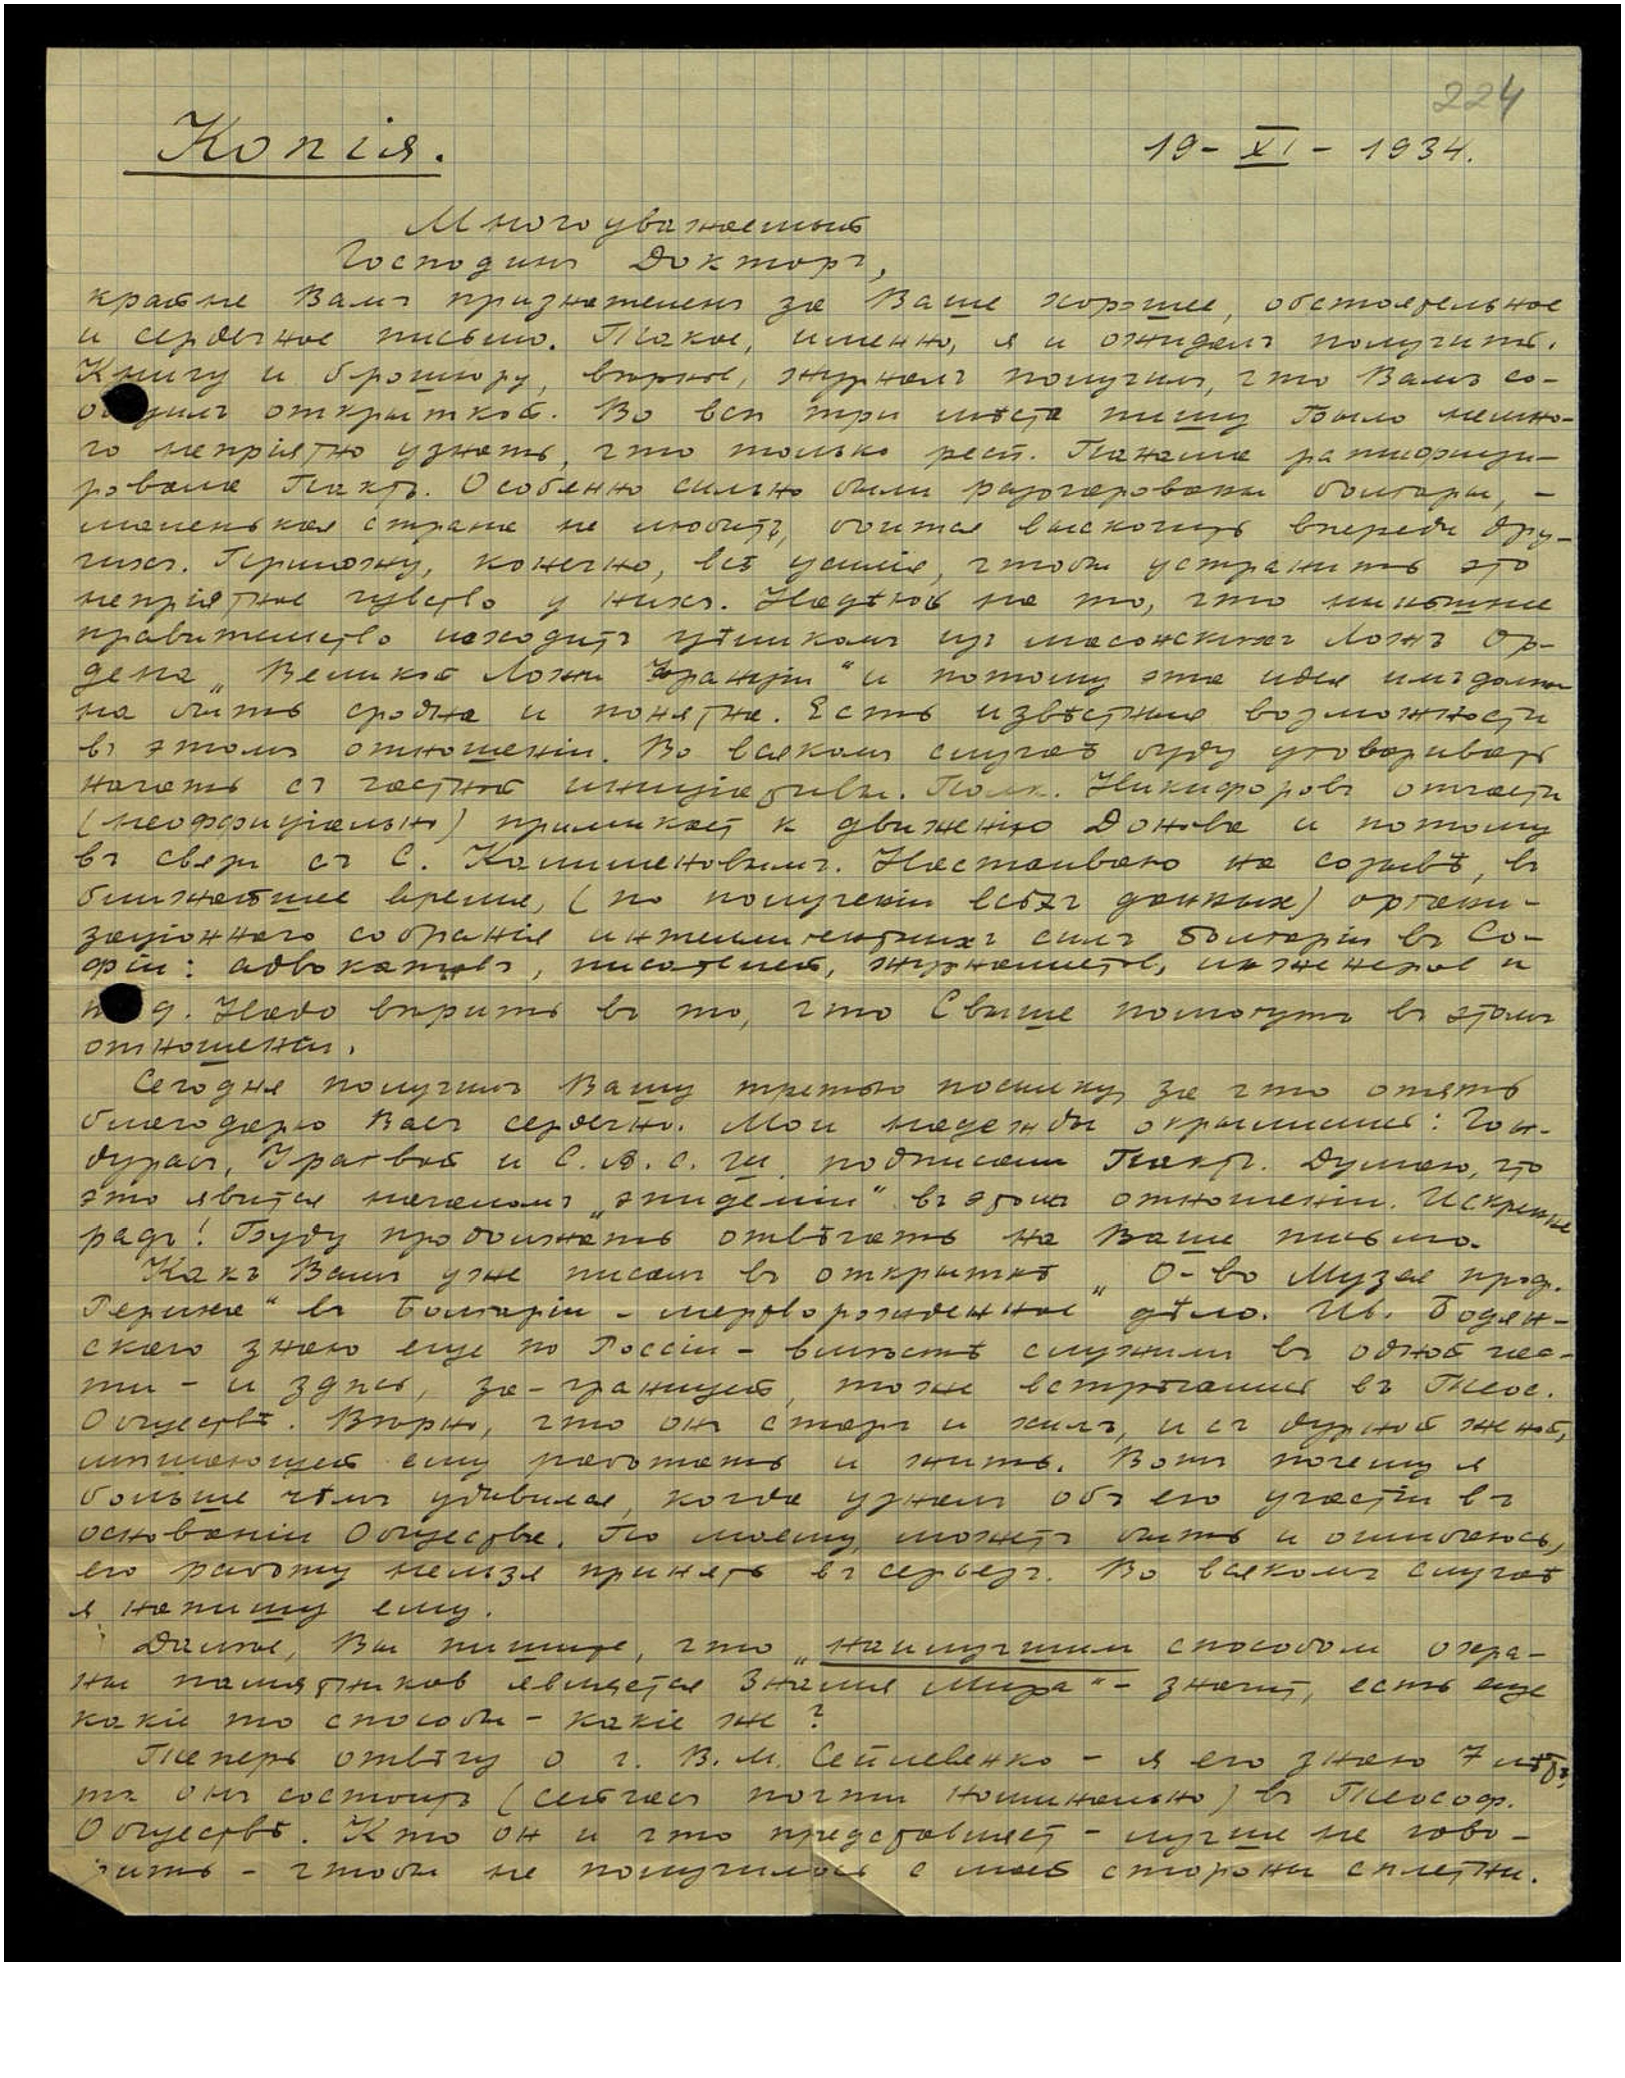 224
Копія.
19 - XI - 1934.
Многоуважаемый
Господинъ Докторъ,
крайне Вамъ признателенъ за Ваше хорошее, обстоятельное
и сердечное письмо. Такое, именно, я и ожидалъ получить.
Книгу и брошюру, вѣрнѣе, журналъ получилъ, что Вамъ со-
общилъ открыткой. Во всѣ три мѣста пишу. Было немно-
го непріятно узнать, что только респ. Панама ратифици-
ровала Пактъ. Особенно сильно были разочарованы болгары, -
маленькая страна не любитъ, боится выскочить впереди дру-
гихъ. Приложу, конечно, всѣ усилія, чтобы устранить это
непріятное чувство у нихъ. Надѣюсь на то, что нынѣшнее
правительство исходитъ цѣликомъ изъ масонскихъ ложъ Ор-
дена „Великой Ложи Франціи" и потому эта идея имъ долж-
на быть сродна и понятна. Есть извѣстныя возможности
въ этомъ отношеніи. Во всякомъ случаѣ буду уговаривать
начать съ частной иниціативы. Полк. Никифоровъ отчасти
(неоффиціально) примыкаетъ к движенію Донова и потому
въ связи съ С. Калименовымъ. Настаиваю на созывѣ, въ
ближайшее время, (по полученіи всѣхъ данныхъ) органи-
заціоннаго собранія интеллигентныхъ силъ Болгаріи въ Со-
фіи: адвокатовъ, писателей, журналистовъ, инженеров и
т. д. Надо вѣрить въ то, что Свыше помогутъ въ этомъ
отношеніи.
Сегодня получилъ Вашу третью посылку, за что опять
благодарю Васъ сердечно. Мои надежды окрылились: Гон-
дурасъ, Урагвай и С.А.С.Ш. подписали Пактъ. Думаю, что
это явится началомъ „эпидеміи" въ этомъ отношеніи. Искренне
радъ! Буду продолжать отвѣчать на Ваше письмо.
Какъ Вамъ уже писалъ въ открыткѣ „О-во Музея проф.
Рериха" въ Болгаріи - мертворожденное дѣло. Ив. Бодян-
скаго знаю еще по Россіи - вмѣстѣ служили въ одной час-
ти - и здѣсь, за-границей, тоже встрѣчались въ Теос.
Обществѣ. Вѣрно, что он старъ и хилъ, и съ дурной женой,
мѣшающей ему работать и жить. Вотъ почему я
больше чѣмъ удивился, когда узналъ объ его участіи въ
основаніи Общества. По моему, можетъ быть и ошибаюсь,
его работу нельзя принять въ серьезъ. Во всякомъ случаѣ
я напишу ему.
Далѣе, Вы пишите, что „наилучшим способом охра-
ны памятников является Знамя Мира" - значитъ, есть еще
какіе то способы - какіе же?
Теперь отвѣчу о г. В. М. Сеплевенко - я его знаю 7 лѣтъ,
онъ состоитъ (сейчасъ почти номинально) въ Теософ.
Обществѣ. Кто он и что представляетъ - лучше не гово-
рить - чтобы не получилось с моей стороны сплетни.